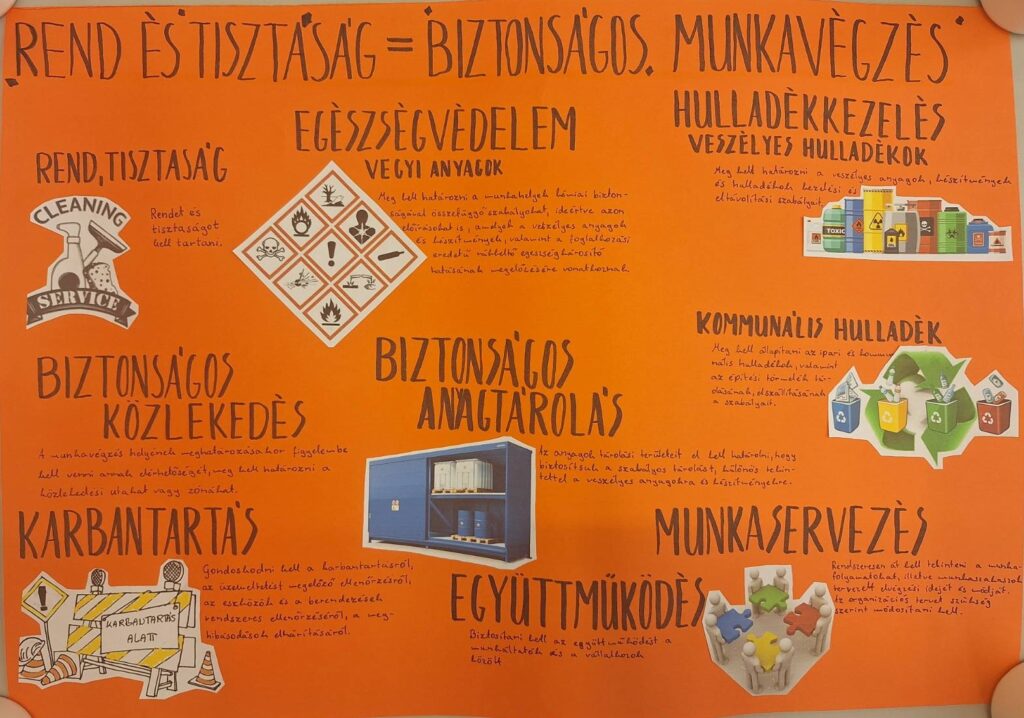 REND ÈS TISZTASÁG = BIZTONSÁGOS MUNKAVÈGZÈS
REND, TISZTASÁG
CLEANING
SERVICE
Rendet és
tisztaságot
kell tartani.
EGÈSZSÈGVÈDELEM
VEGYI ANYAGOK
Meg kell határozni a munkahelyek kémiai bizton-
ságával összefüggő szabályokat, ideértve azon
előírásokat is, amelyek a veszélyes anyagok
és készítmények, valamint a foglalkozási
eredetű rákkeltő egészségkárosító
hatásának megelőzésére vonatkoznak.
HULLADÈKKEZELÈS
VESZÈLYES HULLADÈKOK
Meg kell határozni a veszélyes anyagok, készítmények
és hulladékok kezelési és
eltávolítási szabályait.
TOXIC
KOMMUNÁLIS HULLADÈK
Meg kell állapítani az ipari és kommu-
nális hulladékok, valamint
az építési törmelék tár-
olásának, elszállításának
a szabályait.
BIZTONSÁGOS
KÖZLEKEDÈS
A munkavégzés helyének meghatározásakor figyelembe
kell venni annak elérhetőségét, meg kell határozni a
közlekedési utakat vagy zónákat.
BIZTONSÁGOS
ANYAGTÁROLÁS
Az anyagok tárolási területeit el kell határolni, hogy
biztosítsuk a szabályos tárolást, különös tekin-
tettel a veszélyes anyagokra és készítményekre.
KARBANTARTÁS
KARBANTARTÁS
ALATT
Gondoskodni kell a karbantartásról,
az üzemeltetést megelőző ellenőrzésről,
az eszközök és a berendezések
rendszeres ellenőrzéséről, a meg-
hibásodások elhárításáról.
EGYÜTTMŰKÖDÈS
Biztosítani kell az együttműködést a
munkáltatók és a vállalkozók
között
MUNKASERVEZÈS
Rendszeresen át kell tekinteni a munka-
folyamatokat, illetve munkaszakaszok
tervezett elvégzési idejét és módját.
Az organizációs tervet szükség
szerint módosítani kell.